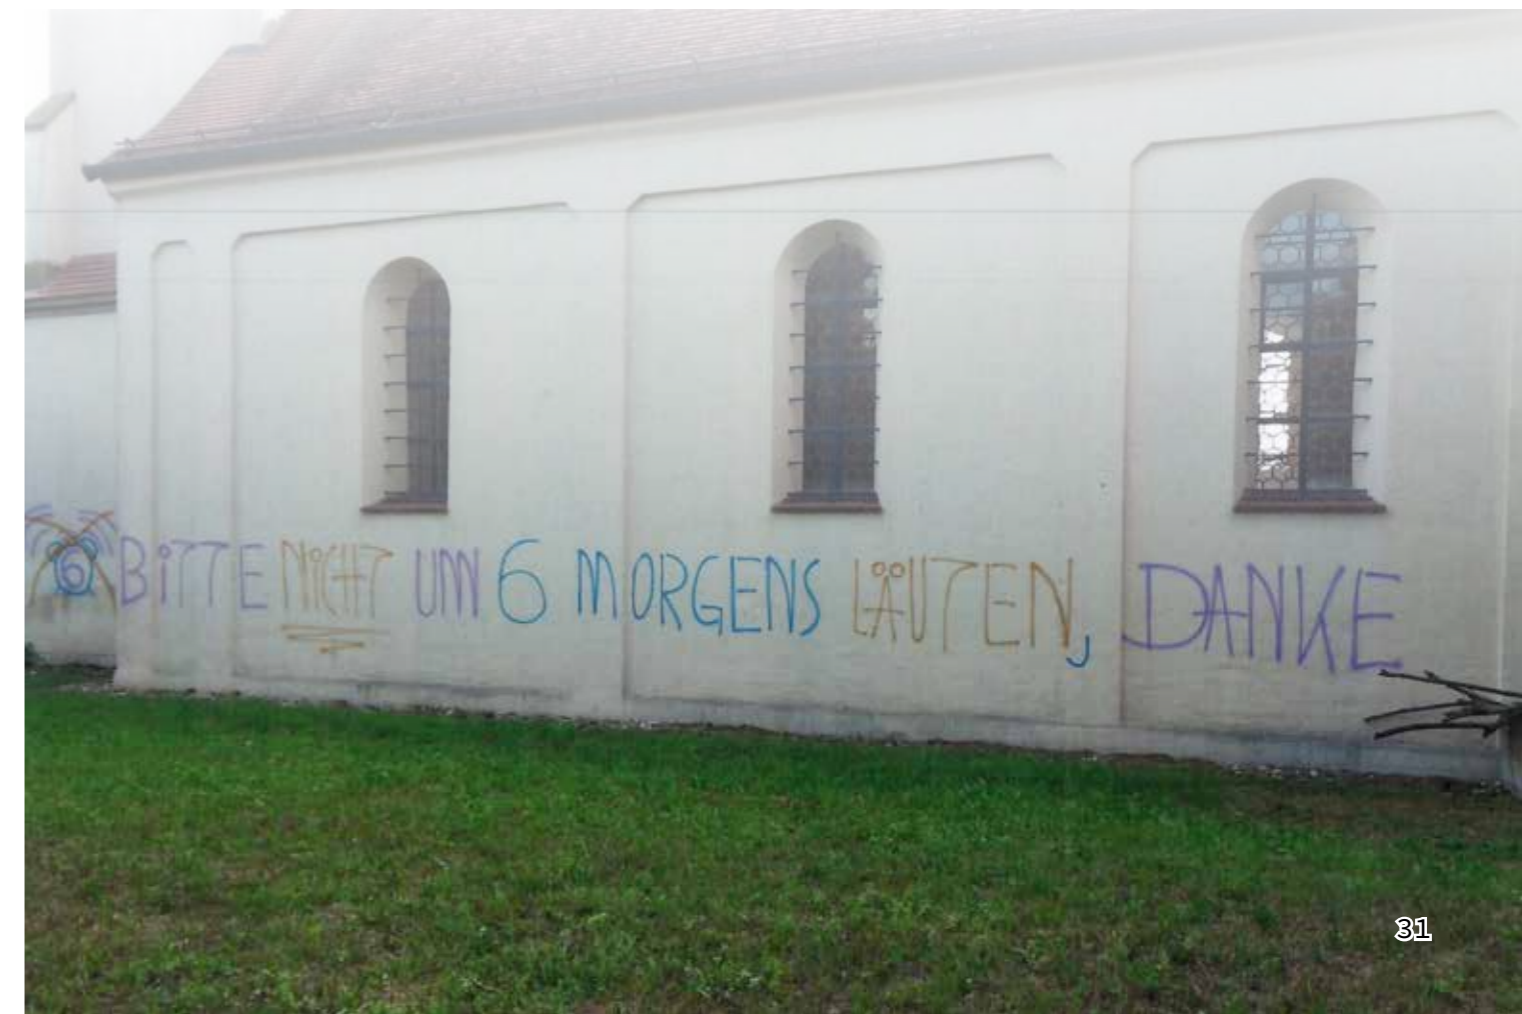 6 BITTE NICHT UM 6 MORGENS LÄUTEN, DANKE
31